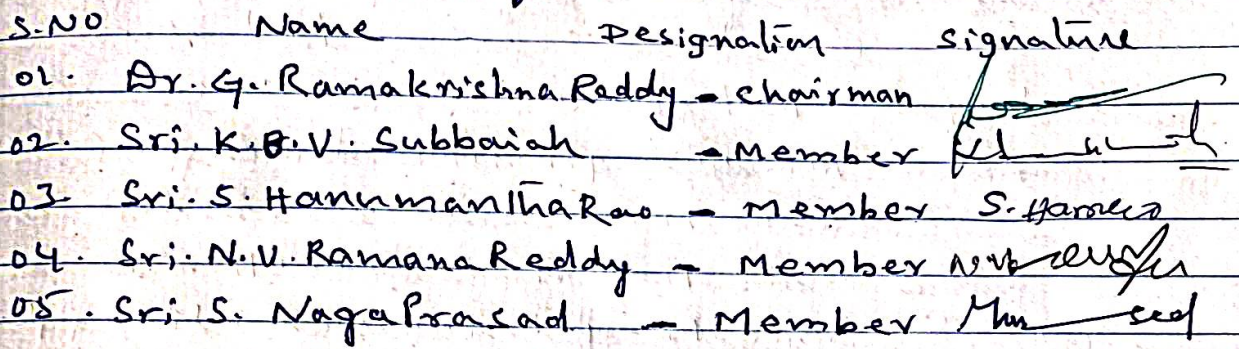 S.NO Name Designation Signature
01. Dr. G. Ramakrishna Reddy - Chairman
02. Sri. K.B.V. Subbaiah - Member
03 Sri. S. Hanumantha Rao - Member
04. Sri. N.V. Ramana Reddy - Member
05. Sri S. NagaPrasad - Member